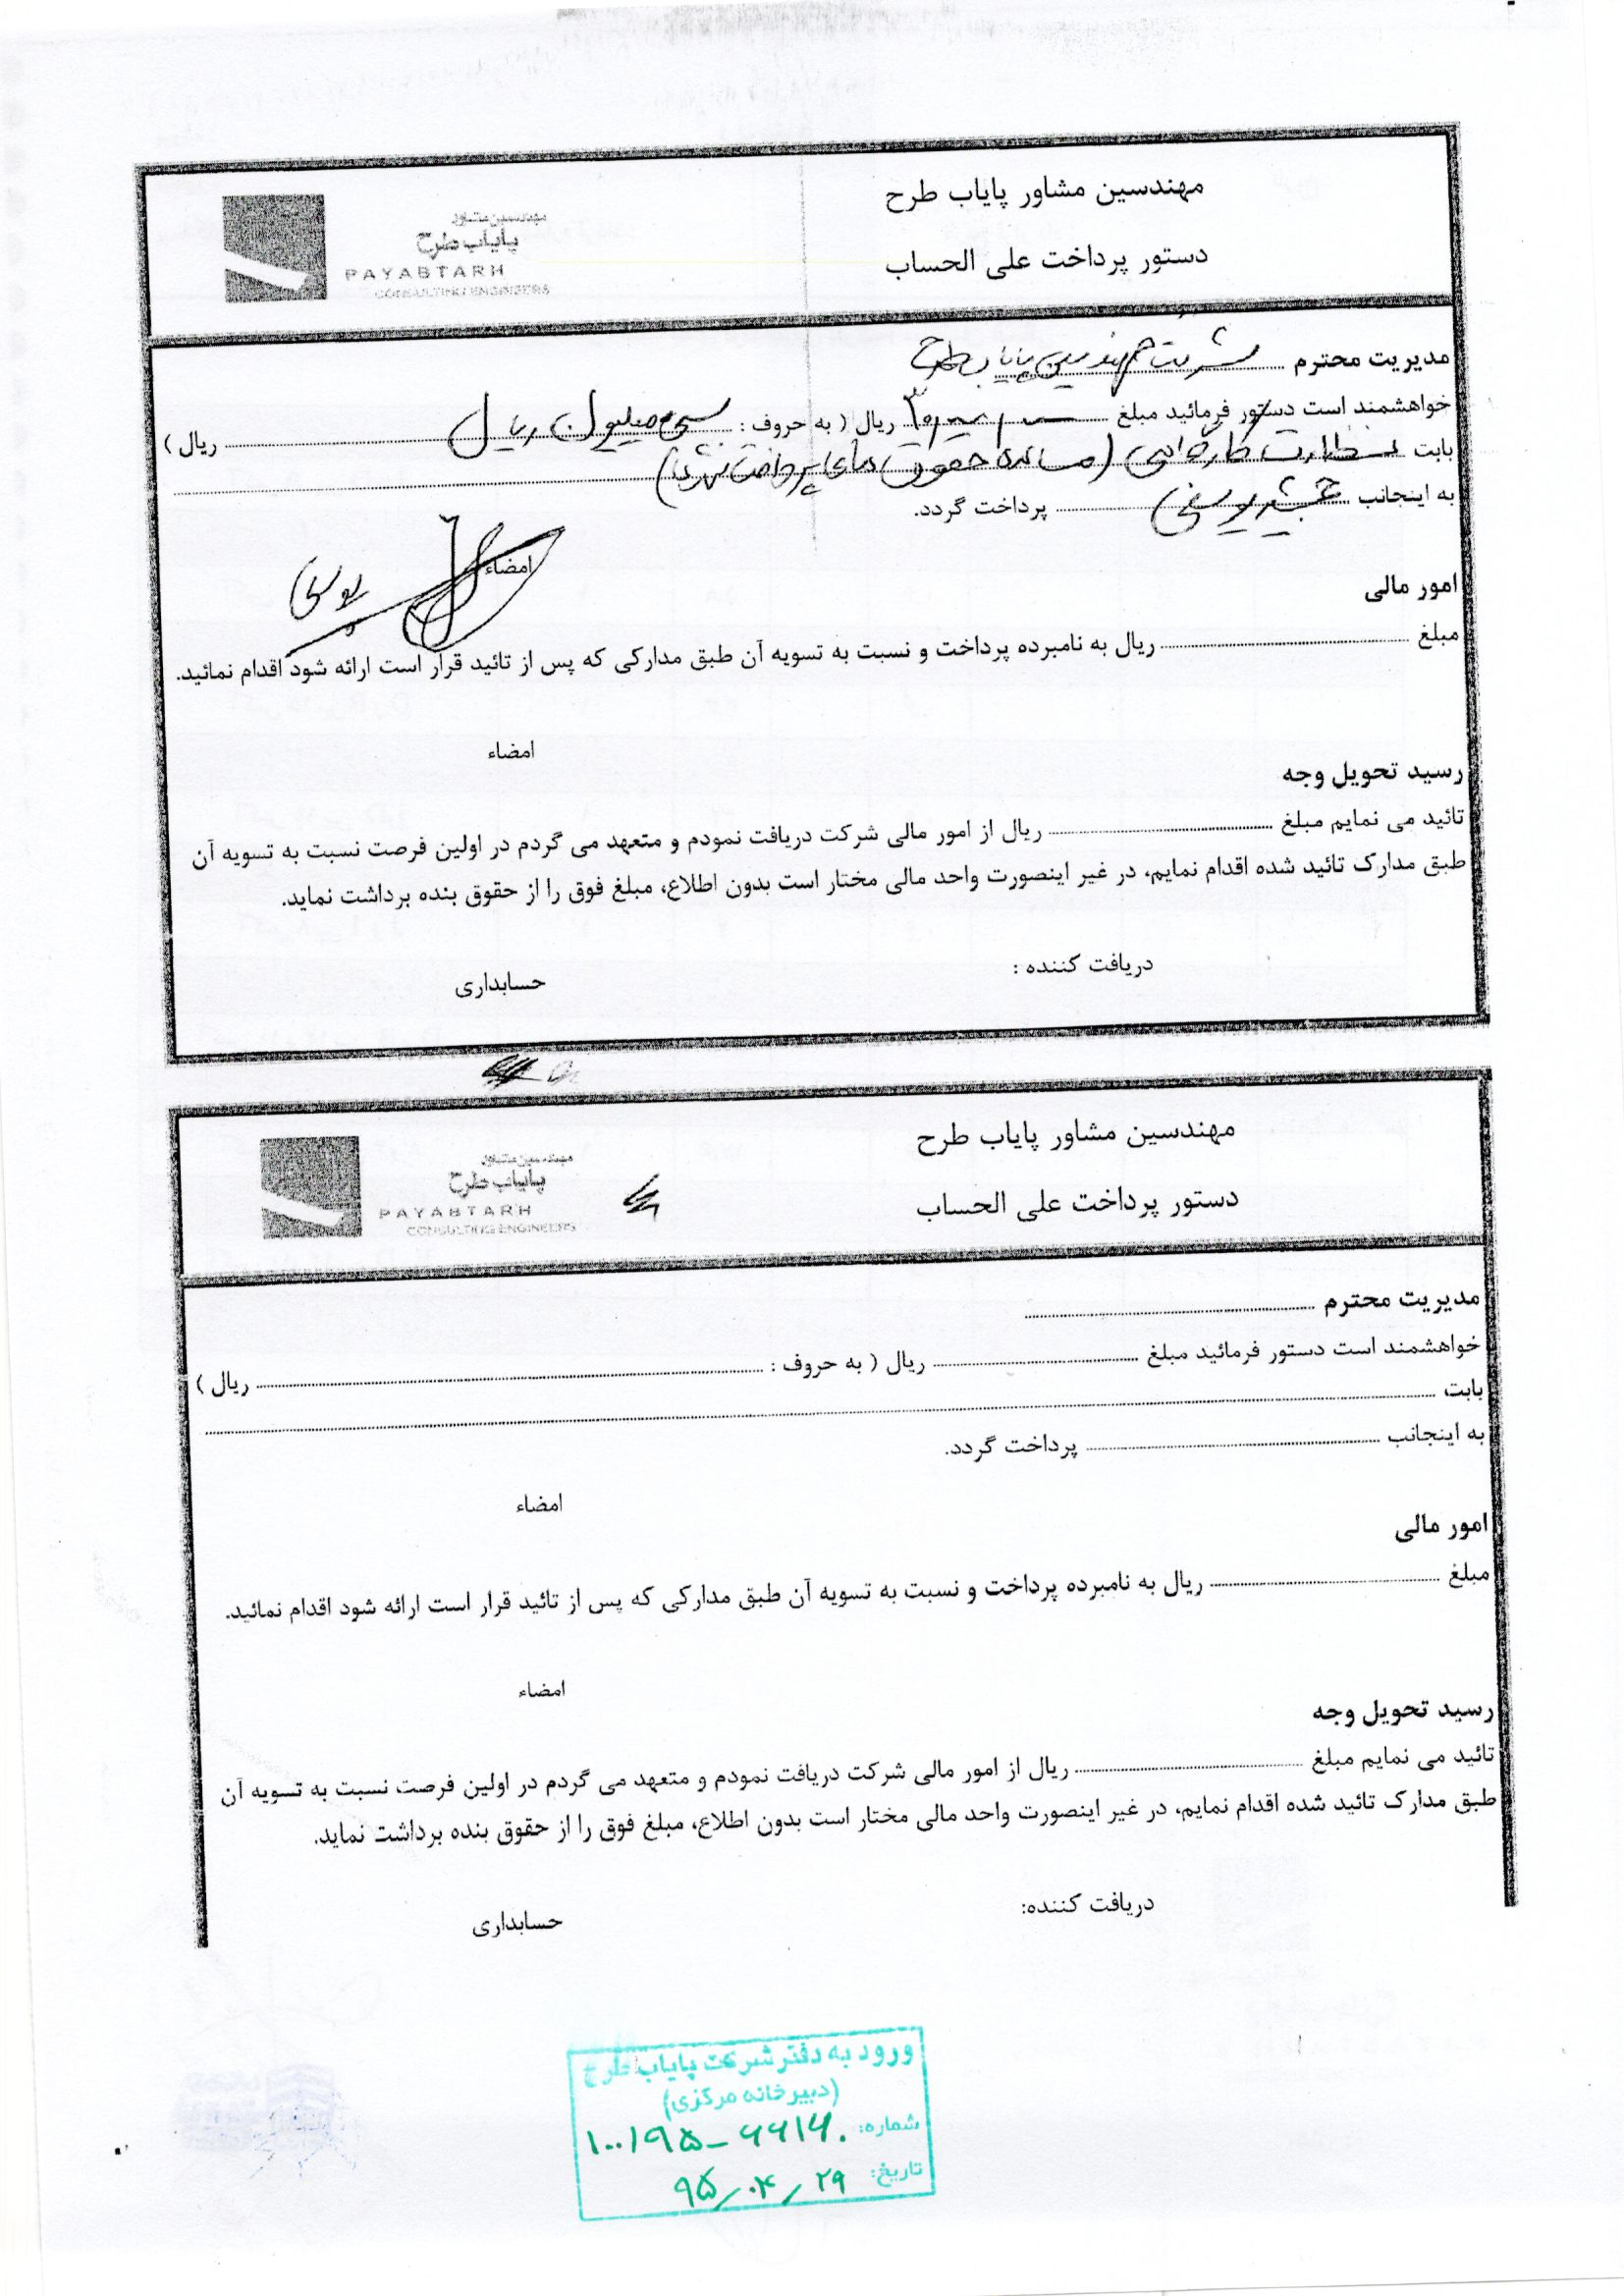 مهندسین مشاور پایاب طرح
مهندسین مشاور
پایاب طرح
PAYABTARH
CONSULTING ENGINEERS
دستور پرداخت علی الحساب
مدیریت محترم شرکت مهندسین پایاب طرح
خواهشمند است دستور فرمائید مبلغ ۳۰٫۰۰۰٫۰۰۰ ریال ( به حروف : سی میلیون ریال ریال )
بابت نظارت (مانده حقوق های پرداخت نشده)
به اینجانب جمشید یوسفی پرداخت گردد.
امضاء
یوسفی
امور مالی
مبلغ ریال به نامبرده پرداخت و نسبت به تسویه آن طبق مدارکی که پس از تائید قرار است ارائه شود اقدام نمائید.
امضاء
رسید تحویل وجه
تائید می نمایم مبلغ ریال از امور مالی شرکت دریافت نمودم و متعهد می گردم در اولین فرصت نسبت به تسویه آن
طبق مدارک تائید شده اقدام نمایم، در غیر اینصورت واحد مالی مختار است بدون اطلاع، مبلغ فوق را از حقوق بنده برداشت نماید.
دریافت کننده :
حسابداری
مهندسین مشاور پایاب طرح
مهندسین مشاور
پایاب طرح
PAYABTARH
CONSULTING ENGINEERS
دستور پرداخت علی الحساب
مدیریت محترم
خواهشمند است دستور فرمائید مبلغ ریال ( به حروف : ریال )
بابت
به اینجانب پرداخت گردد.
امضاء
امور مالی
مبلغ ریال به نامبرده پرداخت و نسبت به تسویه آن طبق مدارکی که پس از تائید قرار است ارائه شود اقدام نمائید.
امضاء
رسید تحویل وجه
تائید می نمایم مبلغ ریال از امور مالی شرکت دریافت نمودم و متعهد می گردم در اولین فرصت نسبت به تسویه آن
طبق مدارک تائید شده اقدام نمایم، در غیر اینصورت واحد مالی مختار است بدون اطلاع، مبلغ فوق را از حقوق بنده برداشت نماید.
دریافت کننده:
حسابداری
ورود به دفتر شرکت پایاب طرح
(دبیرخانه مرکزی)
شماره: ۱۰۰/۹۵-۶۶۱۴۰
تاریخ: ۹۵/۰۴/۲۹